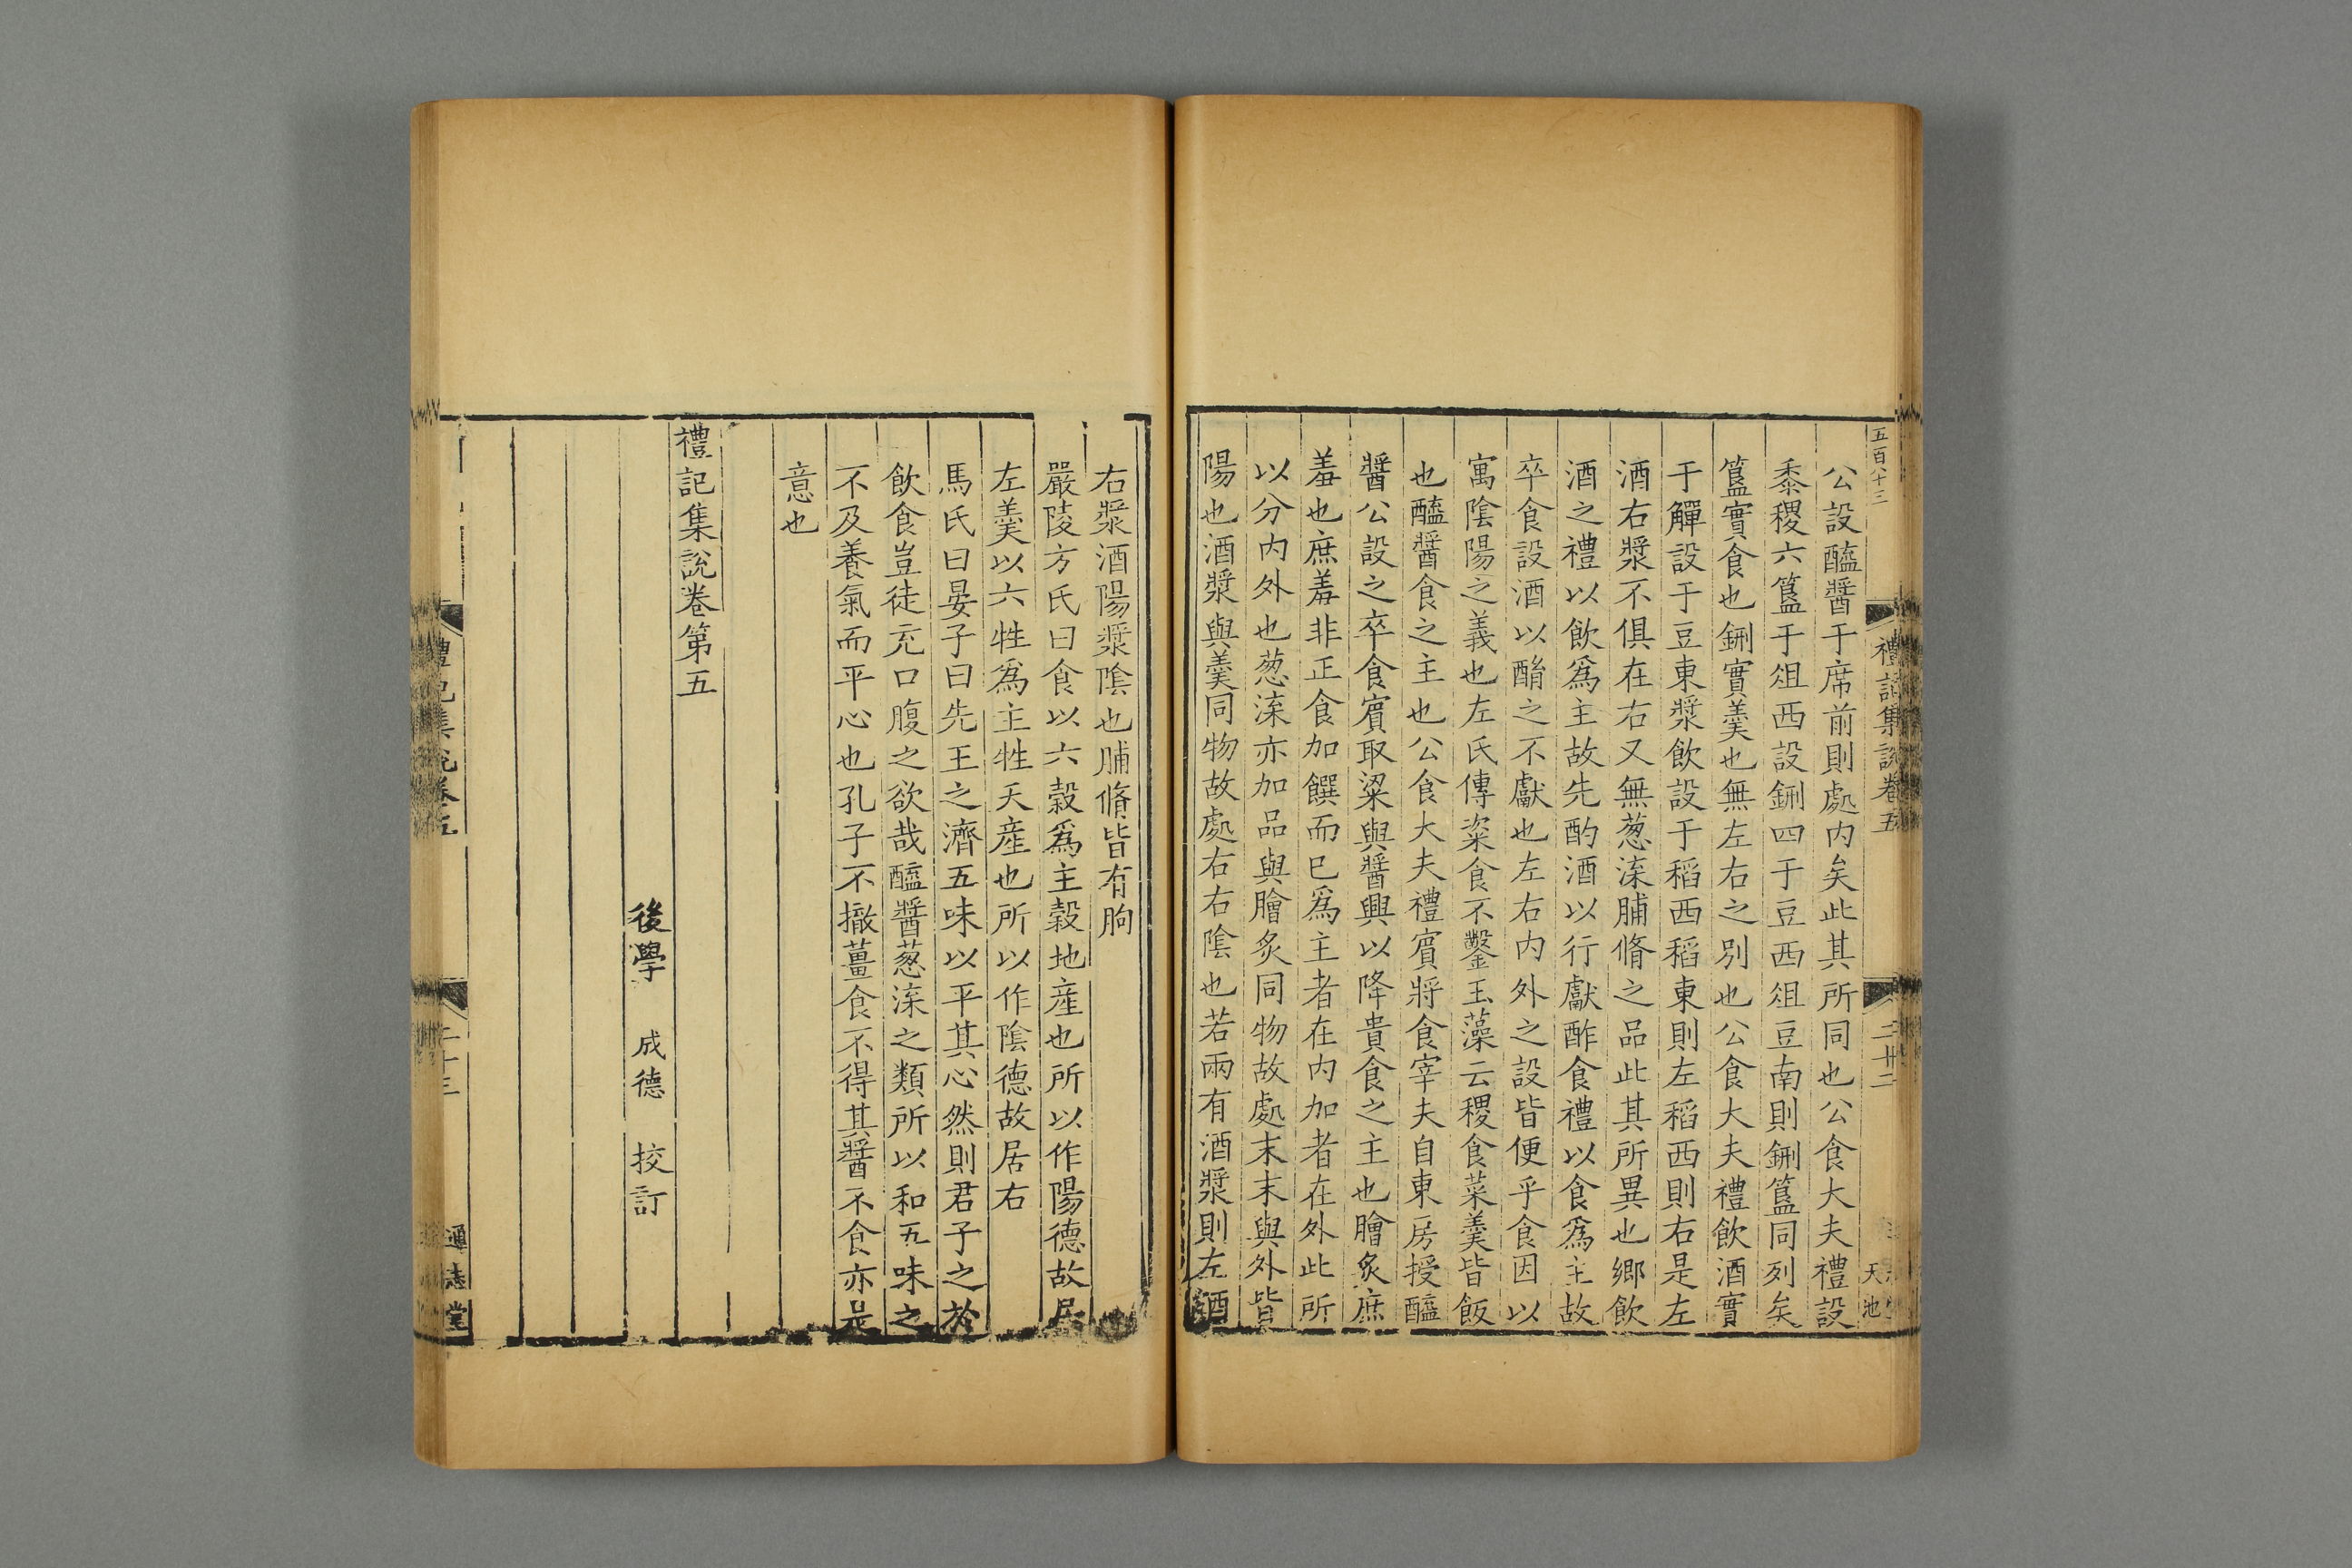 五百八十三
禮記集說卷五
二廿二
天池
公設醯醬于席前則處内矣此其所同也公食大夫禮設
黍稷六簋于俎西設鉶四于豆西俎豆南則鉶簋同列矣
簋實食也鉶實羹也無左右之別也公食大夫禮飲酒實
于觶設于豆東漿飲設于稻西稻東則左稻西則右是左
酒右漿不俱在右又無葱㳿脯脩之品此其所異也鄉飲
酒之禮以飲爲主故先酌酒以行獻酢食禮以食爲主故
卒食設酒以酳之不獻也左右内外之設皆便乎食因以
寓陰陽之義也左氏傳粢食不鑿玉藻云稷食菜羹皆飯
也醯醬食之主也公食大夫禮賔將食宰夫自東房授醯
醬公設之卒食賔取粱與醬興以降貴食之主也膾炙庶
羞也庶羞非正食加饌而已爲主者在内加者在外此所
以分内外也葱㳿亦加品與膾炙同物故處末末與外皆
陽也酒漿與羹同物故處右右陰也若兩有酒漿則左酒
右漿酒陽漿陰也脯脩皆有朐
嚴陵方氏曰食以六穀爲主穀地産也所以作陽德故居
左羹以六牲爲主牲天産也所以作陰德故居右
馬氏曰晏子曰先王之濟五味以平其心然則君子之於
飲食豈徒充口腹之欲哉醯醬葱㳿之類所以和五味之
不及養氣而平心也孔子不撤薑食不得其醬不食亦是
意也
禮記集說卷第五
後學　成德　挍訂
禮記集說卷五
二十三
通志堂